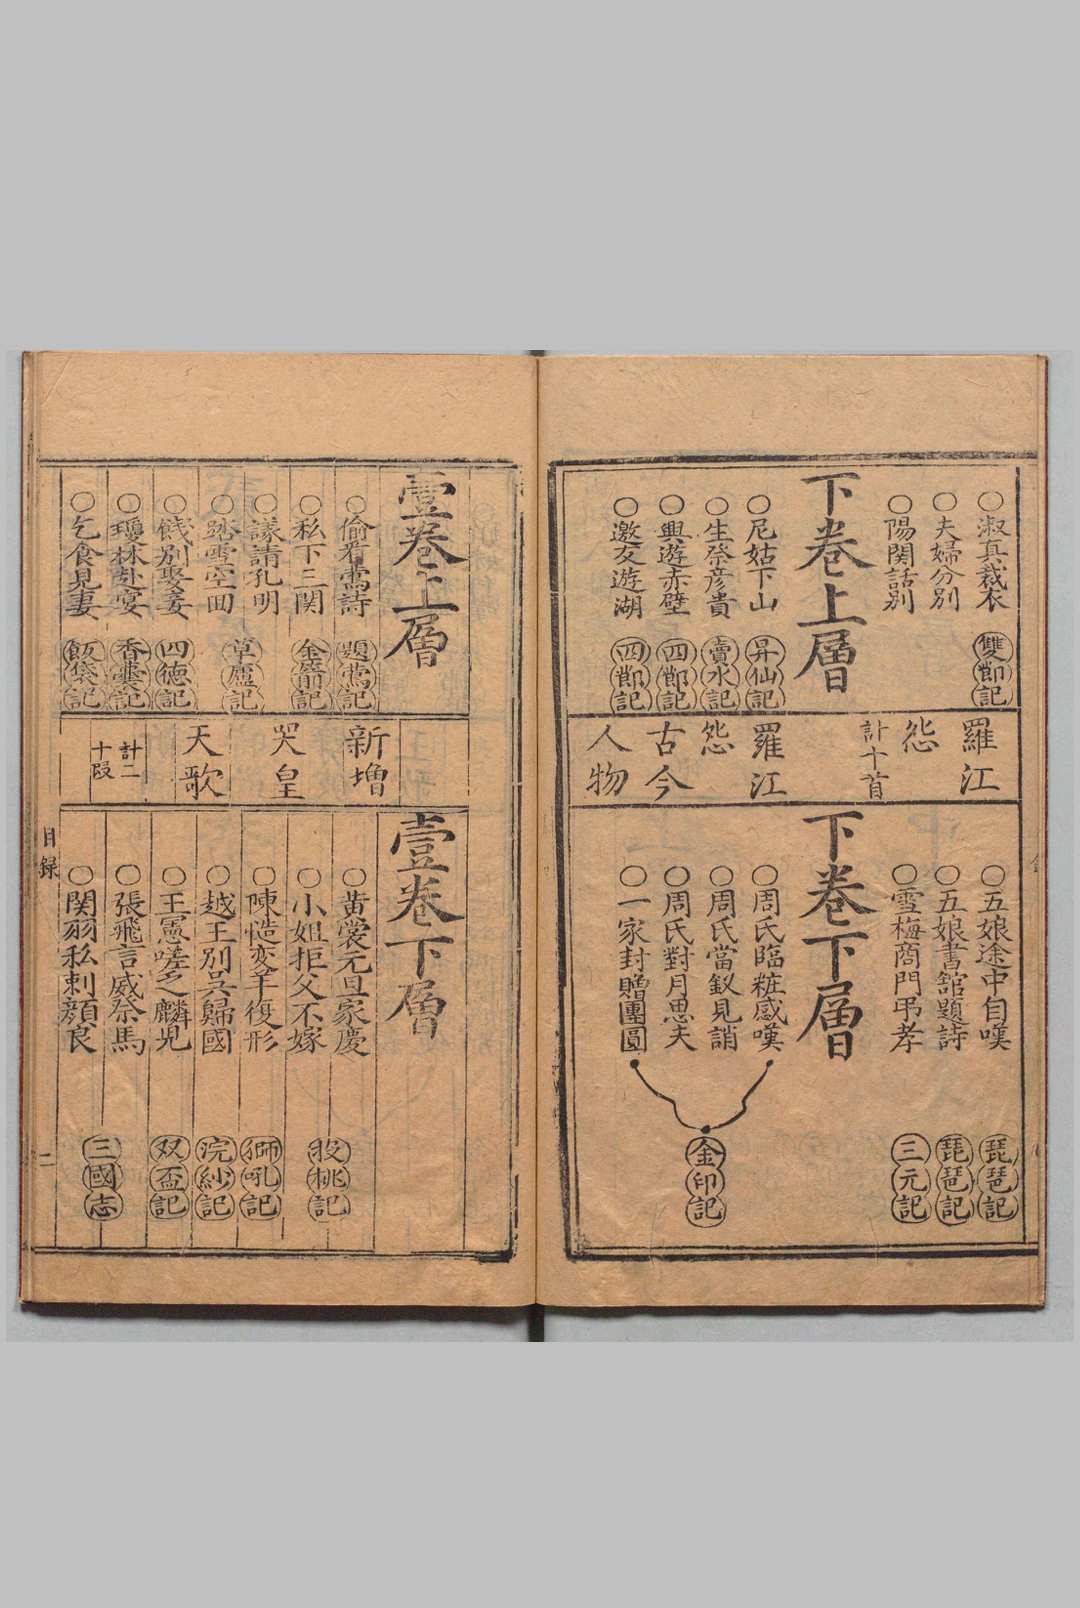 ○淑真裁衣 雙節記
○夫婦分別
○陽関話別
下卷上層
○尼姑下山 昇仙記
○生祭彦貴 賣水記
○興遊赤壁 四節記
○邀友遊湖 四節記
羅江
怨
計十首
羅江
怨
古今
人物
○五娘途中自嘆 琵琶記
○五娘書舘題詩 琵琶記
○雪梅商門弔孝 三元記
下卷下層
○周氏臨粧感嘆
○周氏當釵見誚
○周氏對月思夫
○一家封贈團圓
金印記
壹卷上層
○偷看鶯詩 題鶯記
○私下三関 金箭記
○議請孔明 草廬記
○踏雪空回
○餞別娶妾 四德記
○瓊林赴宴 香囊記
○乞食見妻 飯袋記
新增
哭皇
天歌
計二
十段
壹卷下層
○黃裳元旦家慶
○小姐拒父不嫁
投桃記
○陳慥变羊復形 獅吼記
○越王別吳歸國 浣紗記
○王憲嗟乏麟兒 双盃記
○張飛言威祭馬
○関羽私刺顔良
三國志
目録
二